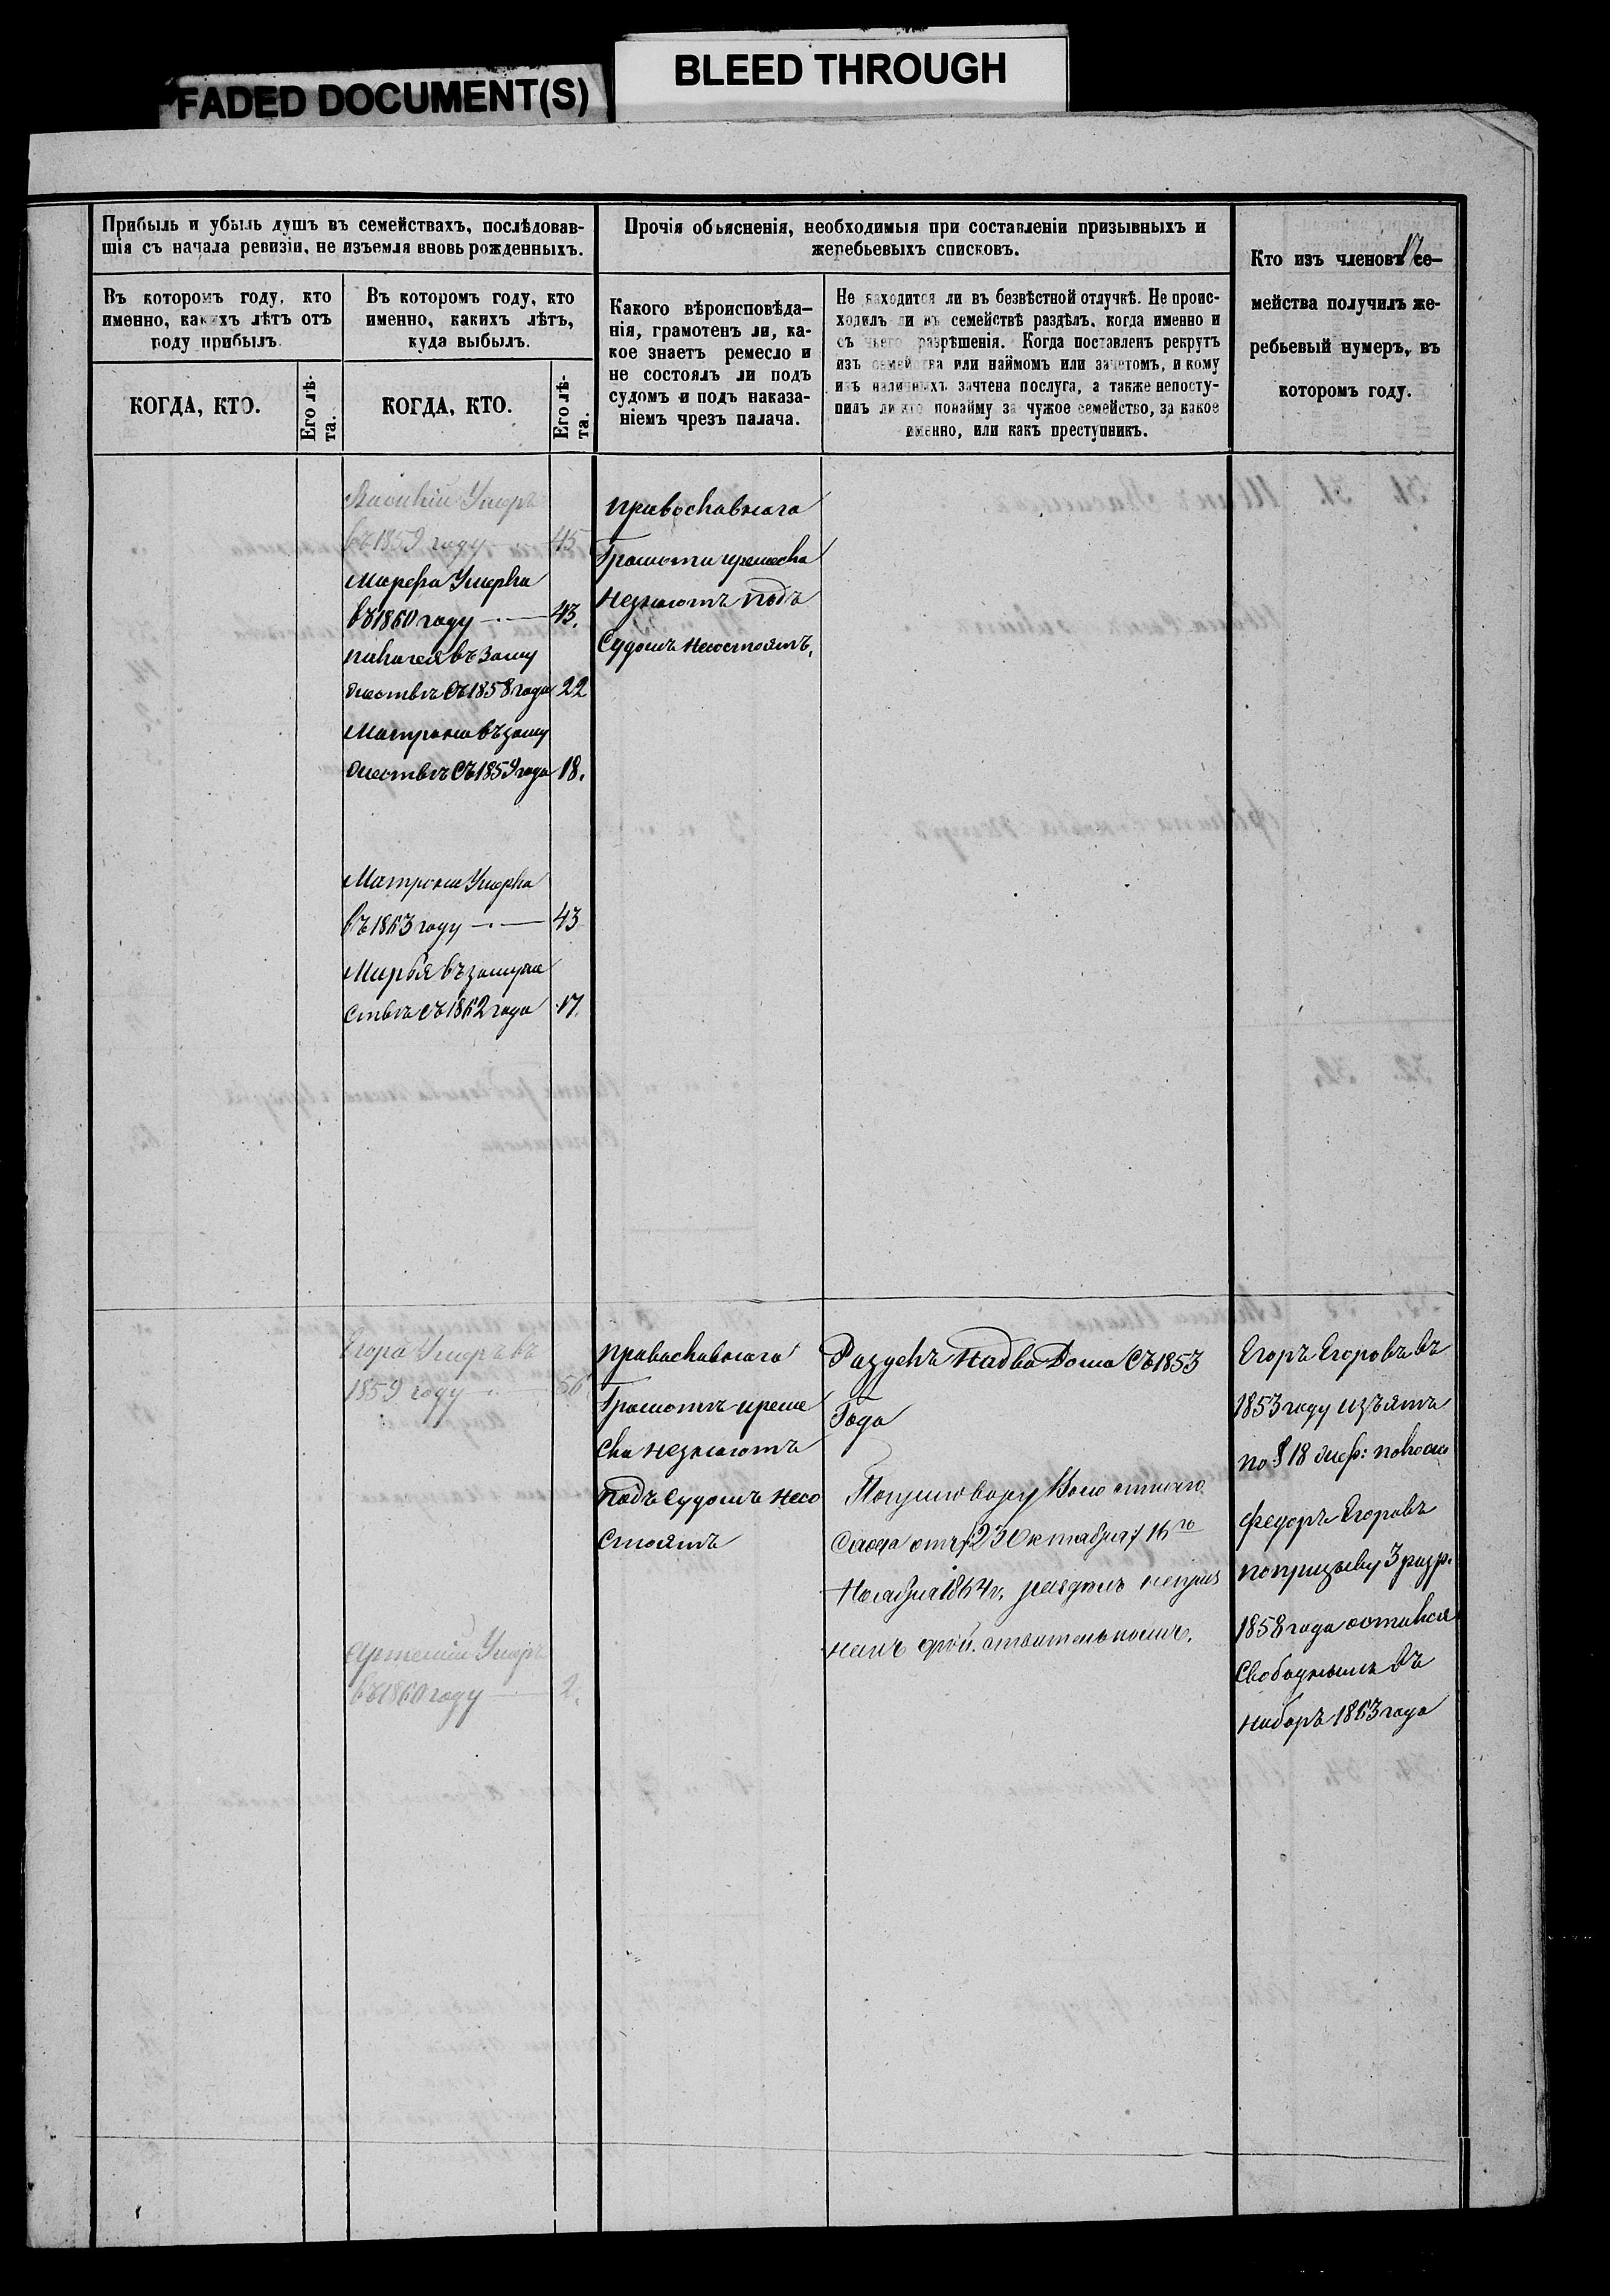 FADED DOCUMENT(S)
BLEED THROUGH
Прибыль и убыль душъ въ семействахъ, послѣдовав-
шія съ начала ревизіи, не изъемля вновь рожденныхъ.
Въ которомъ году, кто
именно, какихъ лѣтъ отъ
роду прибылъ.
КОГДА, КТО.
Его лѣ-
та.
Въ которомъ году, кто
именно, какихъ лѣтъ,
куда выбылъ.
КОГДА, КТО.
Его лѣ-
та.
Прочія объясненія, необходимыя при составленіи призывныхъ и
жеребьевыхъ списковъ.
Какого вѣроисповѣда-
нія, грамотенъ ли, ка-
кое знаетъ ремесло и
не состоялъ ли подъ
судомъ и подъ наказа-
ніемъ чрезъ палача.
Не находится ли въ безвѣстной отлучкѣ. Не проис-
ходилъ ли въ семействѣ раздѣлъ, когда именно и
съ чьего разрѣшенія. Когда поставленъ рекрутъ
изъ семейства или наймомъ или зачетомъ, и кому
изъ наличныхъ зачтена послуга, а также непосту-
пилъ ли кто понайму за чужое семейство, за какое
именно, или какъ преступникъ.
Кто изъ членовъ се-
мейства получилъ же-
ребьевый нумеръ, въ
которомъ году.
Умеръ
въ 1859 году 45
Марфа Умерла
въ 1860 году 43.
въ заму
жествѣ съ 1858 года 22
Матрона въ заму
жествѣ съ 1859 года 18.
Матрона Умерла
въ 1863 году 43
Марья въ замуже
ствѣ съ 1862 года 17.
православнаго
Грамоты иремесла
незнаютъ подъ
Судомъ несостоятъ,
Егоръ Умеръ въ
1859 году 56
Артемій Умеръ
въ 1860 году 2.
православнаго
Грамотѣ иреме
сла незнаютъ
подъ Судомъ несо
стоятъ
Раздѣлъ надва Дома съ 1853
Года
Поприговору Волостнаго
Схода отъ 23 Октября / 16го
Ноября 1864 г. раздѣлъ неприз
нанъ
Егоръ Егоровъ въ
1853 году изъятъ
по § 18
Федоръ Егоровъ
попризыву 3 разр.
1858 года остался
Свободнымъ въ
наборъ 1863 года